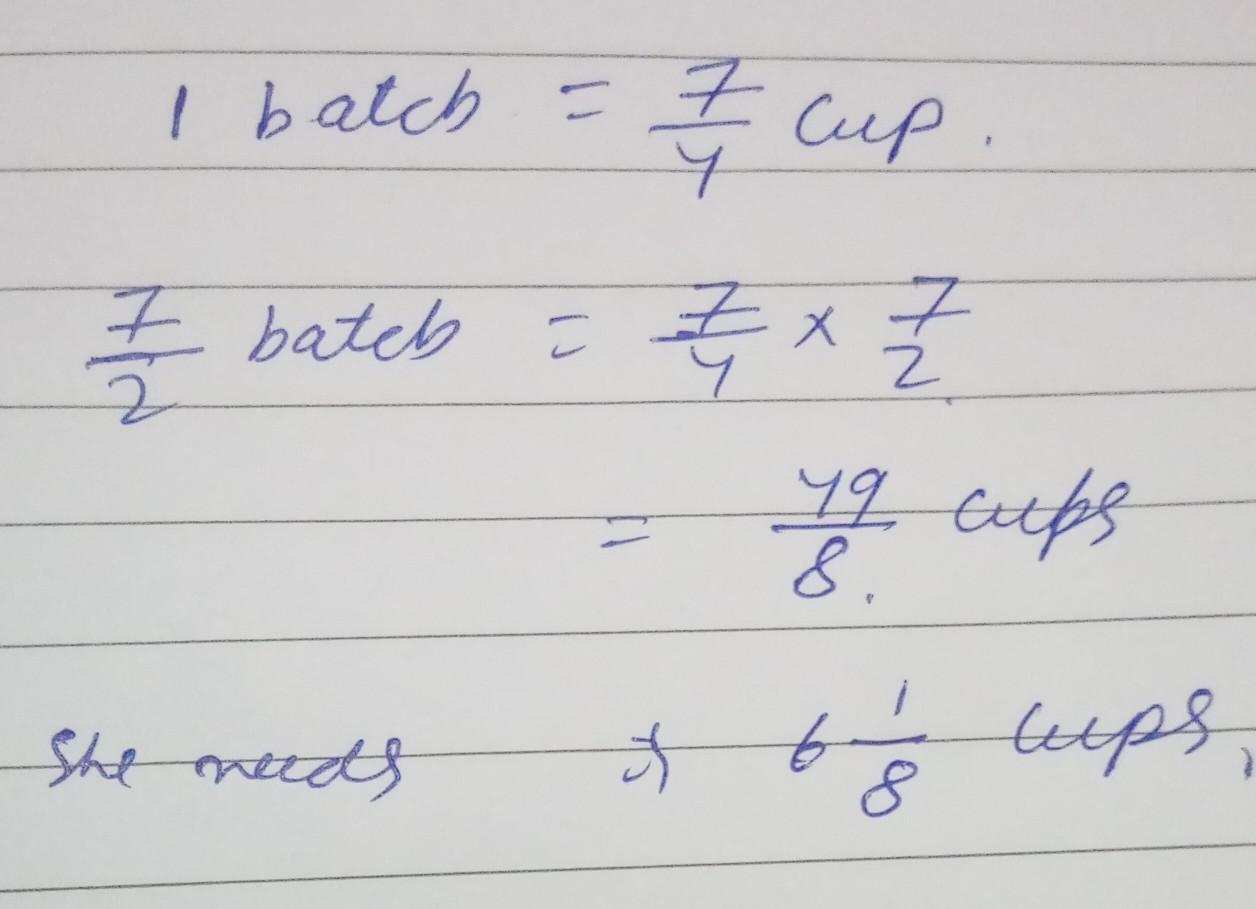 1 batch = 7/4 cup.
7/2 batch = 7/4 × 7/2
= 49/8. cups
She needs ⇒ 6 1/8 cups,